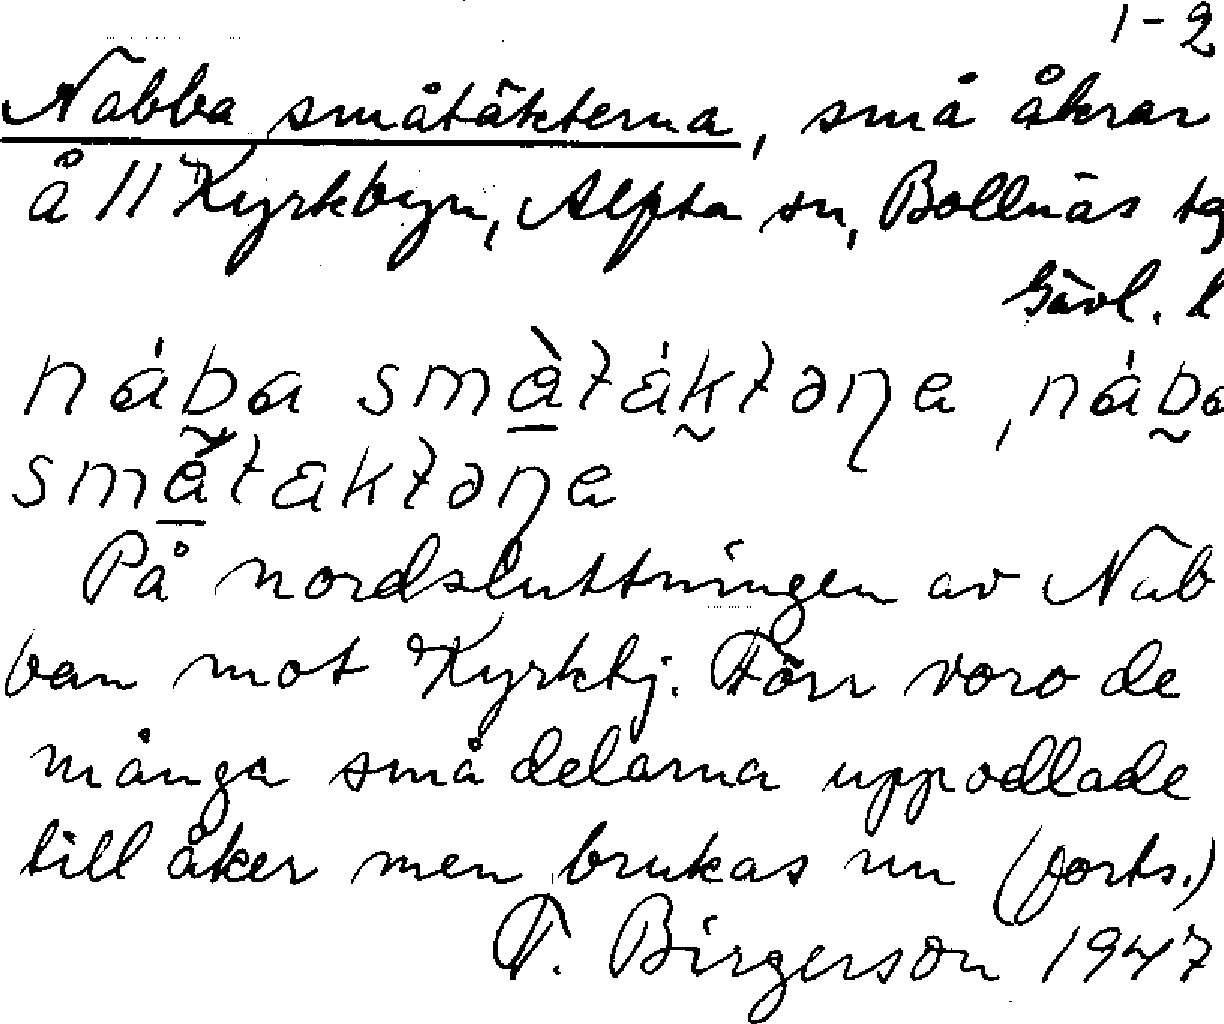 1-2
Nabba småtäkterna, små åkrar
å 11 Kyrkbyn, Alfta sn, Bollnäs tg
Gävl. l
På nordsluttningen av Nab
ban mot Kyrkbj. Förr voro de
många små delarna uppodlade
till åker men brukas nu (forts.)
F. Birgerson 1947